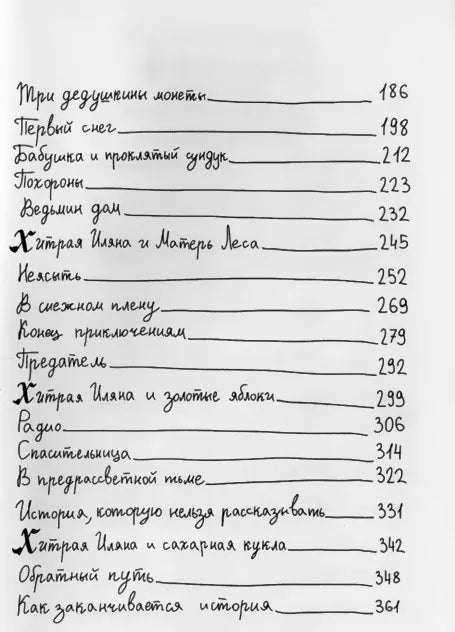 Три дедушкины монеты 186
Первый снег 198
Бабушка и проклятый сундук 212
Похороны 223
Ведьмин дом 232
Хитрая Иляна и Матерь Леса 245
Неясыть 252
В снежном плену 269
Конец приключениям 279
Предатель 292
Хитрая Иляна и золотые яблоки 299
Радио 306
Спасительница 314
В предрассветной тьме 322
История, которую нельзя рассказывать 331
Хитрая Иляна и сахарная кукла 342
Обратный путь 348
Как заканчивается история 361